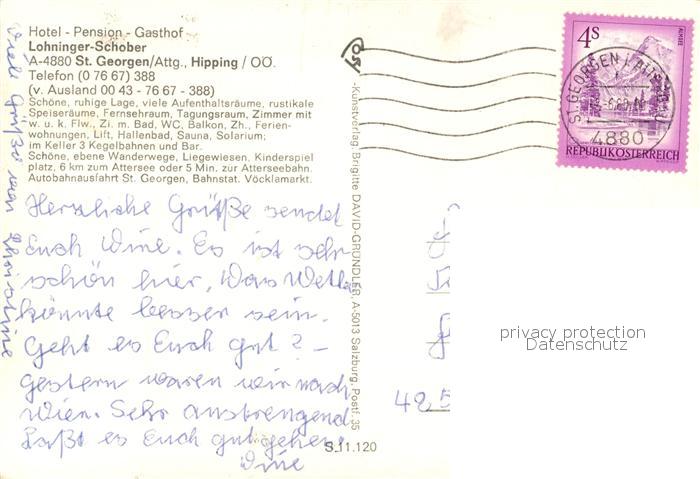 Hotel - Pension - Gasthof
Lohninger-Schober
A-4880 St. Georgen/Attg., Hipping / OÖ.
Telefon (0 76 67) 388
(v. Ausland 00 43 - 76 67 - 388)
Schöne, ruhige Lage, viele Aufenthaltsräume, rustikale
Speiseräume, Fernsehraum, Tagungsraum, Zimmer mit
w. u. k. Flw., Zi. m. Bad, WC, Balkon, Zh., Ferien-
wohnungen, Lift, Hallenbad, Sauna, Solarium;
im Keller 3 Kegelbahnen und Bar.
Schöne, ebene Wanderwege, Liegewiesen, Kinderspiel
platz, 6 km zum Attersee oder 5 Min. zur Atterseebahn.
Autobahnausfahrt St. Georgen, Bahnstat. Vöcklamarkt.
Herzliche Grüße sendet
Euch Wine. Es ist sehr
schön hier, Das Wetter
könnte besser sein.
Geht es Euch gut? -
gestern waren wir nach
Wien. Sehr anstrengend
Laßt es Euch gut gehen.
Wine
Viele Grüße von Christine
Kunstverlag: Brigitte DAVID-GRÜNDLER, A-5013 Salzburg, Postf. 35
S 11.120
4S
ALMSEE
REPUBLIK ÖSTERREICH
ST. GEORGEN I. ATTERGAU
4880
privacy protection
Datenschutz